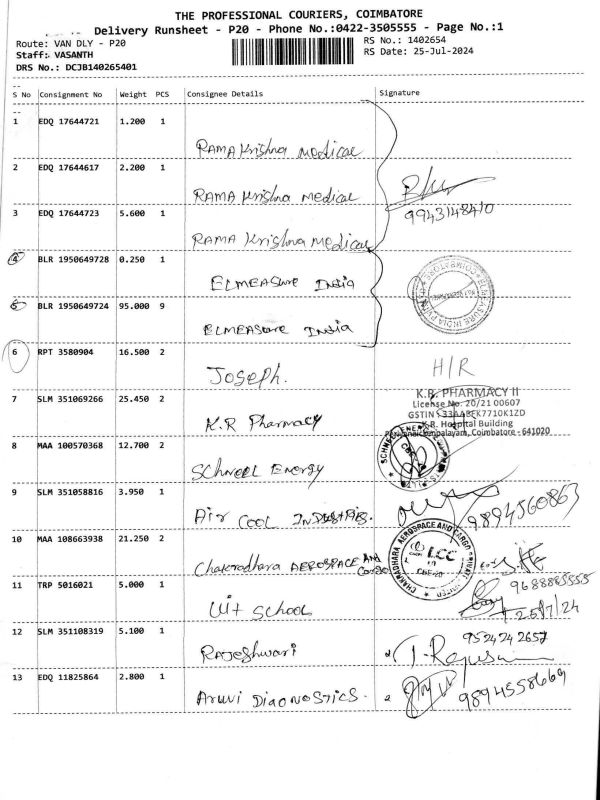 THE PROFESSIONAL COURIERS, COIMBATORE
Delivery Runsheet - P20 - Phone No.:0422-3505555 - Page No.:1
Route: VAN DLY - P20
RS No.: 1402654
Staff: VASANTH
RS Date: 25-Jul-2024
DRS No.: DCJB140265401
S No Consignment No Weight PCS Consignee Details Signature
1 EDQ 17644721 1.200 1
RAMA Krishna Medical
2 EDQ 17644617 2.200 1
RAMA Krishna Medical
9943148410
3 EDQ 17644723 5.600 1
RAMA Krishna Medical
4 BLR 1950649728 0.250 1
ELMEASure India
5 BLR 1950649724 95.000 9
ELMEASure India
6 RPT 3580904 16.500 2
Joseph.
H/R
7 SLM 351069266 25.450 2
K.R Pharmacy
K.R. PHARMACY II
License No. 20/21 00607
K.R. Hospital Building
Coimbatore - 641020
8 MAA 100570368 12.700 2
Schneel Energy
9 SLM 351058816 3.950 1
Air Cool Industries.
9894560863
10 MAA 108663938 21.250 2
Chakradhara AEROSPACE And Cargo
CHAKRADHARA AEROSPACE AND CARGO PRIVATE LIMITED
LCC
CBE-20
11 TRP 5016021 5.000 1
School
9688885555
25/7/24
12 SLM 351108319 5.100 1
Rajeshwari
9524242657
13 EDQ 11825864 2.800 1
Aruvi Diagnostics.
9894558669